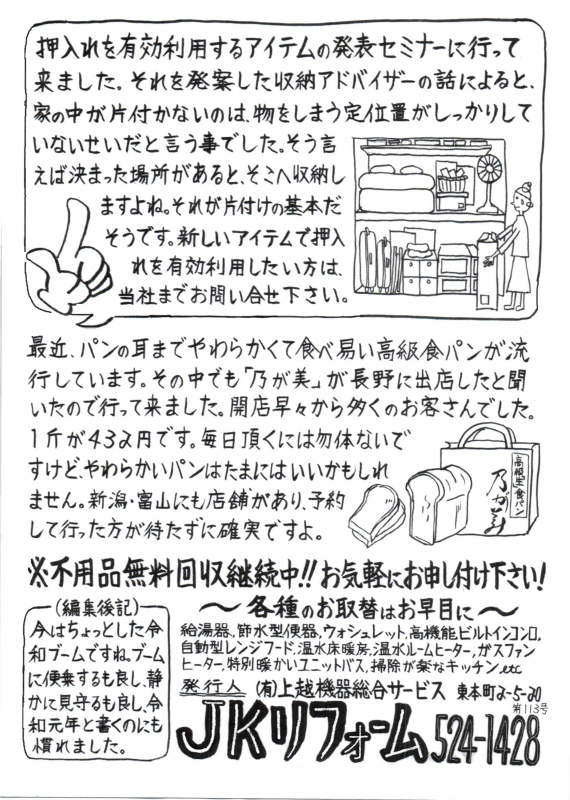 押入れを有効利用するアイテムの発表セミナーに行って
来ました。それを発案した収納アドバイザーの話によると、
家の中が片付かないのは、物をしまう定位置がしっかりして
いないせいだと言う事でした。そう言
えば決まった場所があると、そこへ収納し
ますよね。それが片付けの基本だ
そうです。新しいアイテムで押入
れを有効利用したい方は、
当社までお問い合せ下さい。
最近、パンの耳までやわらかくて食べ易い高級食パンが流
行しています。その中でも「乃が美」が長野に出店したと聞
いたので行って来ました。開店早々から多くのお客さんでした。
1斤が432円です。毎日頂くには勿体ないで
すけど、やわらかいパンはたまにはいいかもしれ
ません。新潟・富山にも店舗があり、予約
して行った方が待たずに確実ですよ。
高級生食パン
乃が美
※不用品無料回収継続中!!お気軽にお申し付け下さい!
(編集後記)
今はちょっとした令
和ブームですね。ブーム
に便乗するも良し、静
かに見守るも良し、令
和元年と書くのにも
慣れました。
〜各種のお取替はお早目に〜
給湯器、節水型便器、ウォシュレット、高機能ビルトインコンロ、
自動型レンジフード、温水床暖房、温水ルームヒーター、ガスファン
ヒーター、特別暖かいユニットバス、掃除が楽なキッチン、etc
発行人 (有)上越機器総合サービス 東本町2-5-20
第113号
JKリフォーム 524-1428